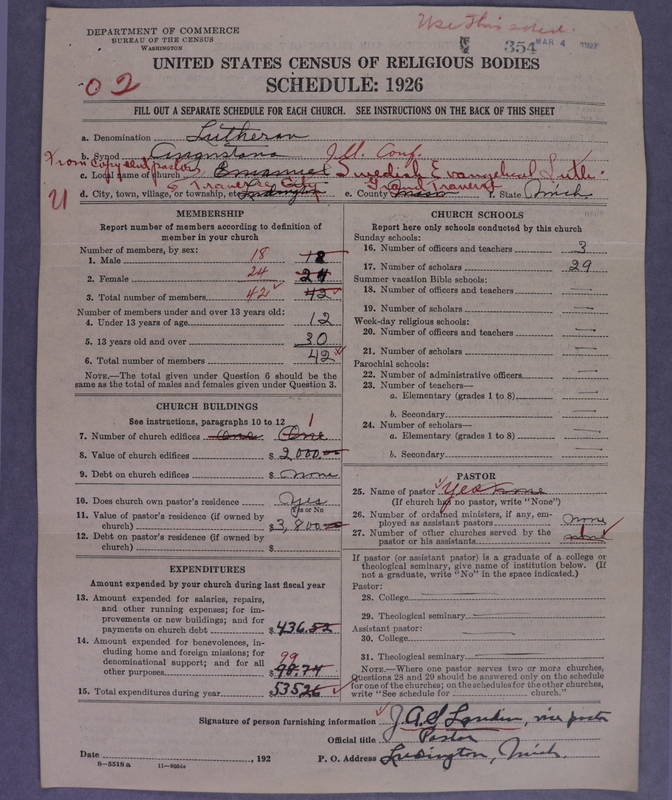 Use This sched.
DEPARTMENT OF COMMERCE
BUREAU OF THE CENSUS
WASHINGTON
354 MAR 4
UNITED STATES CENSUS OF RELIGIOUS BODIES
02
SCHEDULE: 1926
FILL OUT A SEPARATE SCHEDULE FOR EACH CHURCH. SEE INSTRUCTIONS ON THE BACK OF THIS SHEET
a. Denomination Lutheran
b. Synod Augustana Ill. Conf.
From copy sent pastor
c. Local name of church Emanuel Swedish Evangelical Luth.
U
Traverse City Grand Traverse
d. City, town, village, or township, etc. Ludington e. County Mason f. State Mich.
MEMBERSHIP
Report number of members according to definition of member in your church
Number of members, by sex:
1. Male 18 18
2. Female 24 24
3. Total number of members 42 42
Number of members under and over 13 years old:
4. Under 13 years of age 12
5. 13 years old and over 30
6. Total number of members 42
NOTE.—The total given under Question 6 should be the same as the total of males and females given under Question 3.
CHURCH BUILDINGS
See instructions, paragraphs 10 to 12
1
7. Number of church edifices One One
8. Value of church edifices $ 2000
9. Debt on church edifices $ None
10. Does church own pastor's residence Yes
Yes or No
11. Value of pastor's residence (if owned by church) $ 3,800
12. Debt on pastor's residence (if owned by church) $
EXPENDITURES
Amount expended by your church during last fiscal year
13. Amount expended for salaries, repairs, and other running expenses; for improvements or new buildings; and for payments on church debt $ 436.52
14. Amount expended for benevolences, including home and foreign missions; for denominational support; and for all other purposes 99 $ 98.74
15. Total expenditures during year $ 535.26
CHURCH SCHOOLS
Report here only schools conducted by this church
Sunday schools:
16. Number of officers and teachers 3
17. Number of scholars 29
Summer vacation Bible schools:
18. Number of officers and teachers
19. Number of scholars
Week-day religious schools:
20. Number of officers and teachers
21. Number of scholars
Parochial schools:
22. Number of administrative officers
23. Number of teachers—
a. Elementary (grades 1 to 8)
b. Secondary
24. Number of scholars—
a. Elementary (grades 1 to 8)
b. Secondary
PASTOR
25. Name of pastor Yes None
(If church has no pastor, write "None")
26. Number of ordained ministers, if any, employed as assistant pastors None
27. Number of other churches served by the pastor or his assistants 1
If pastor (or assistant pastor) is a graduate of a college or theological seminary, give name of institution below. (If not a graduate, write "No" in the space indicated.)
Pastor:
28. College
29. Theological seminary
Assistant pastor:
30. College
31. Theological seminary
NOTE.—Where one pastor serves two or more churches, Questions 28 and 29 should be answered only on the schedule for one of the churches; on the schedules for the other churches, write "See schedule for church."
Signature of person furnishing information J. A. S. Landin, vice pastor
Official title Pastor
Date , 192 P. O. Address Ludington, Mich.
8—5518a